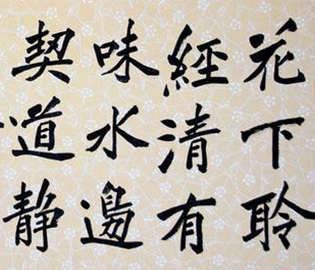 花下聆
經清有
味水邊
契道静